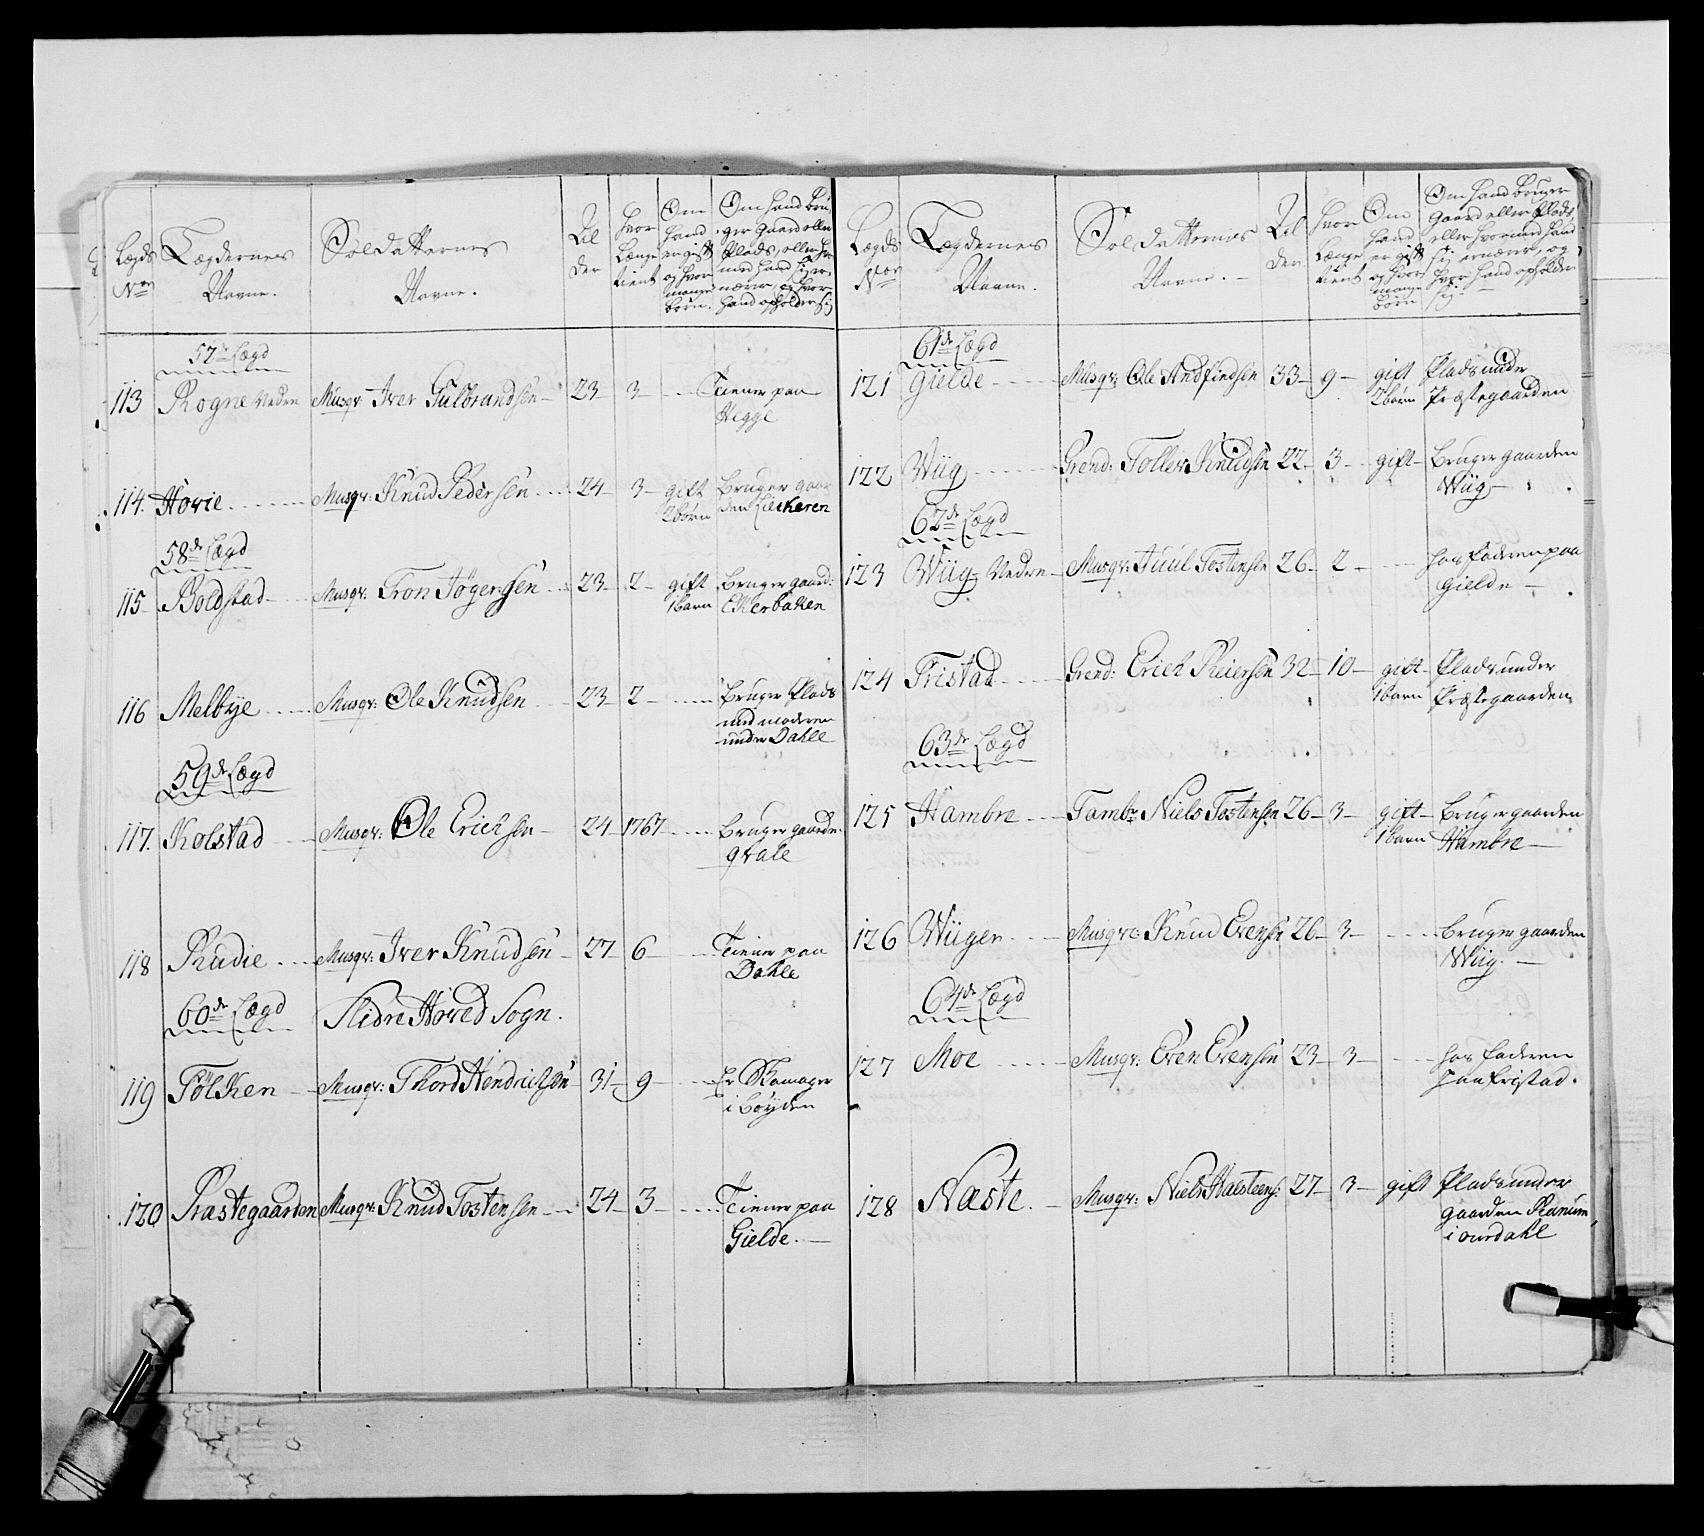 Lægds Nor
Lægdernes Navne.
Soldatternes Navne.
Alder
hvor Længe tient
Om hand er gift og hvor mange børn.
Om hand bruger Gaard eller Plads, eller hvor med hand sig ernærer, og hvor hand opholder sig
57de Lægd
113 Rogne Nedre Musqr: Iver Gulbrandsen 23 3 Tiener paa
Vigge
114. Hovie Musqr: Knud Pedersen 24 3 gift Bruger gaar
2 børn den
58de Lægd
115 Boldstad Musqr: Tron Jøgersen 23 2 gift Bruger gaard:
1 barn Ekkerbakken
116 Melbye Musqr: Ole Knudsen 23 2 Bruger Plads
med moderen
under Dahle
59de Lægd
117. Kolstad Musqr: Ole Erichsen 24 1767 Bruger gaarden
Qvale
118 Rudie Musqr: Iver Knudsen 27 6 Tiener paa
Dahle
60de Lægd Slidre Hoved Sogn.
119 Følken Musqr: Thord Hendrichsen 31 9 Er Skomager
i Bøyden
120 Præstegaarden Musqr: Knud Tostensen 24 3 Tiener paa
Gielde.
Lægds Nor
Lægdernes Navne.
Soldatternes Navne.
Alder
hvor Længe tient
Om hand er gift og hvor mange børn
Om hand bruger Gaard eller Plads, eller hvormed hand sig ernærer, og hvor hand opholder sig
61de Lægd
121 Gielde Musqr: Ole Andfindsen 33 9 gift Plads under
2 børn Præstegaarden
122 Wiig Grend: Tollev Knudsen 22 3 gift Bruger gaarden
Wiig
62de Lægd
123 Wiig Nedre Musqr: Juul Tostensen 26 2 hos faderen paa
Gielde
124 Fristad Grend: Erich Peiersen 32 10 gift Plads under
1 barn Præstegaarden
63de Lægd
125 Hambre Tambr Niels Tostensen 26 3 gift Bruger gaarden
1 barn Hambre
126 Wiigen Musqr: Knud Evensen 26 3 Bruger gaarden
Wiig.
64de Lægd
127 Moe Musqr: Even Evensen 23 3 hos faderen
paa Fristad.
128 Næste. Musqr: Niels Halsteens: 27 3 gift Plads under
gaarden Ranum
i ourdahl